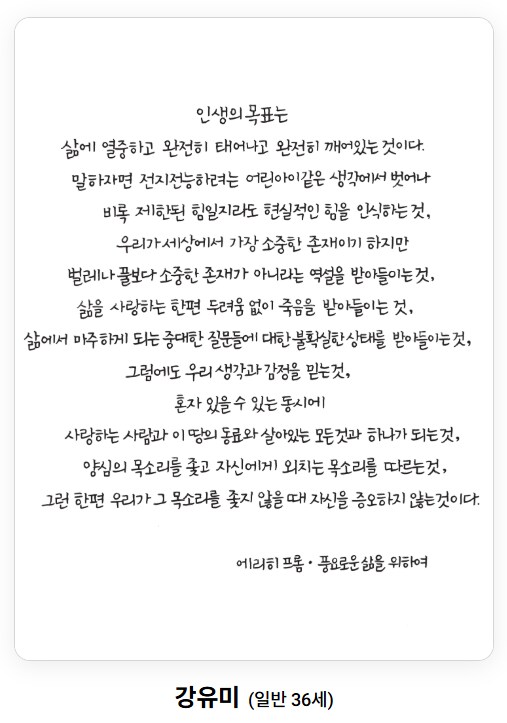 인생의 목표는
삶에 열중하고 완전히 태어나고 완전히 깨어있는 것이다.
말하자면 전지전능하려는 어린아이같은 생각에서 벗어나
비록 제한된 힘일지라도 현실적인 힘을 인식하는 것,
우리가 세상에서 가장 소중한 존재이기 하지만
벌레나 풀보다 소중한 존재가 아니라는 역설을 받아들이는 것,
삶을 사랑하는 한편 두려움 없이 죽음을 받아들이는 것,
삶에서 마주하게 되는 중대한 질문들에 대한 불확실한 상태를 받아들이는 것,
그럼에도 우리 생각과 감정을 믿는 것,
혼자 있을 수 있는 동시에
사랑하는 사람과 이 땅의 동료와 살아있는 모든것과 하나가 되는 것,
양심의 목소리를 좇고 자신에게 외치는 목소리를 따르는 것,
그런 한편 우리가 그 목소리를 좇지 않을 때 자신을 증오하지 않는 것이다.
에리히 프롬 · 풍요로운 삶을 위하여
강유미 (일반 36세)